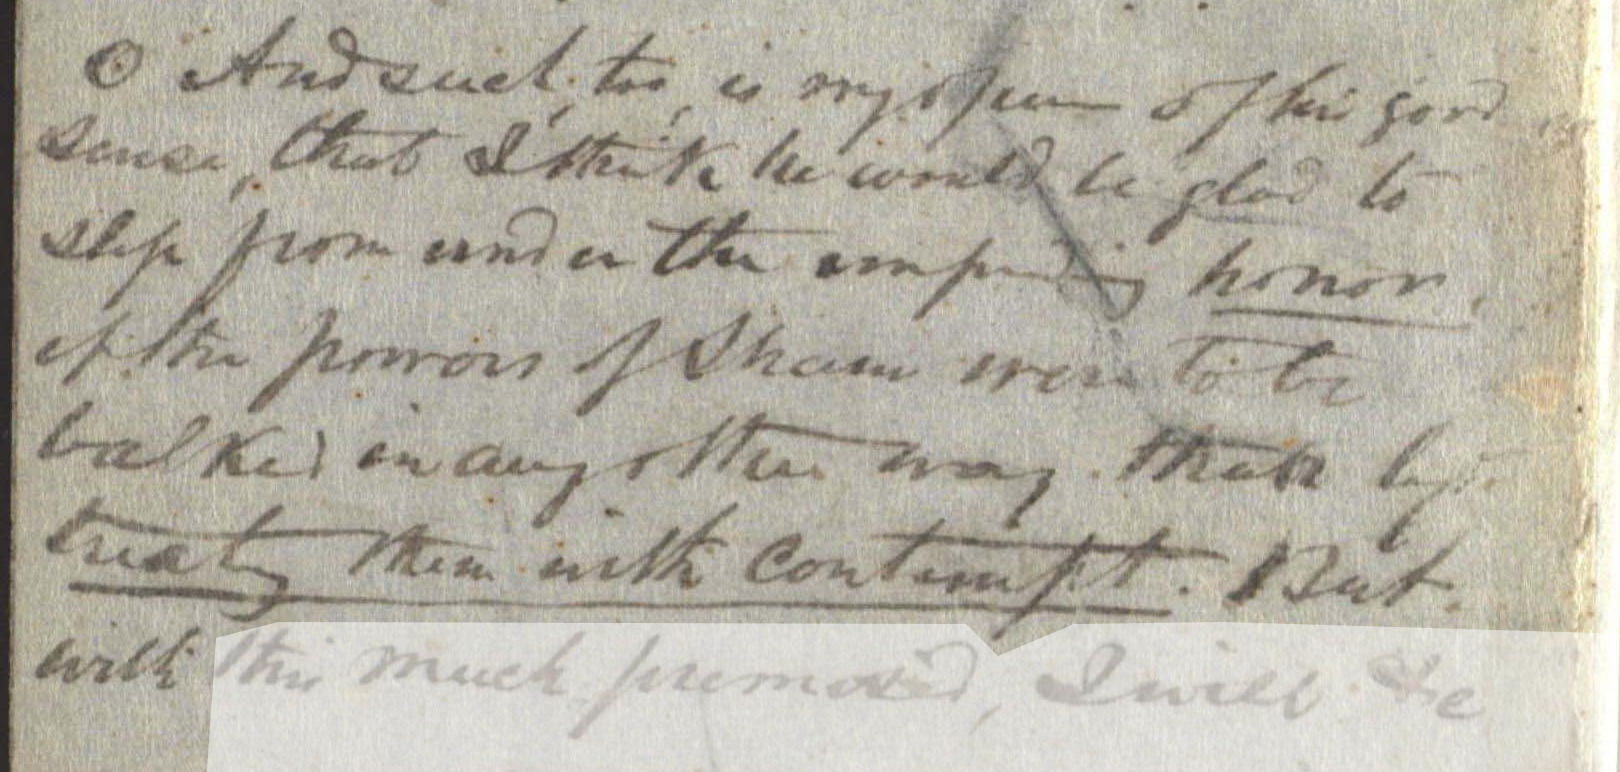 O And such, too, is my opinion of his good
sense, that I think he would be glad to
slip from under the impending honor,
if the powers of Sham were to be
balked in any other way than by
treating them with contempt. But
with this much premised, I will &c